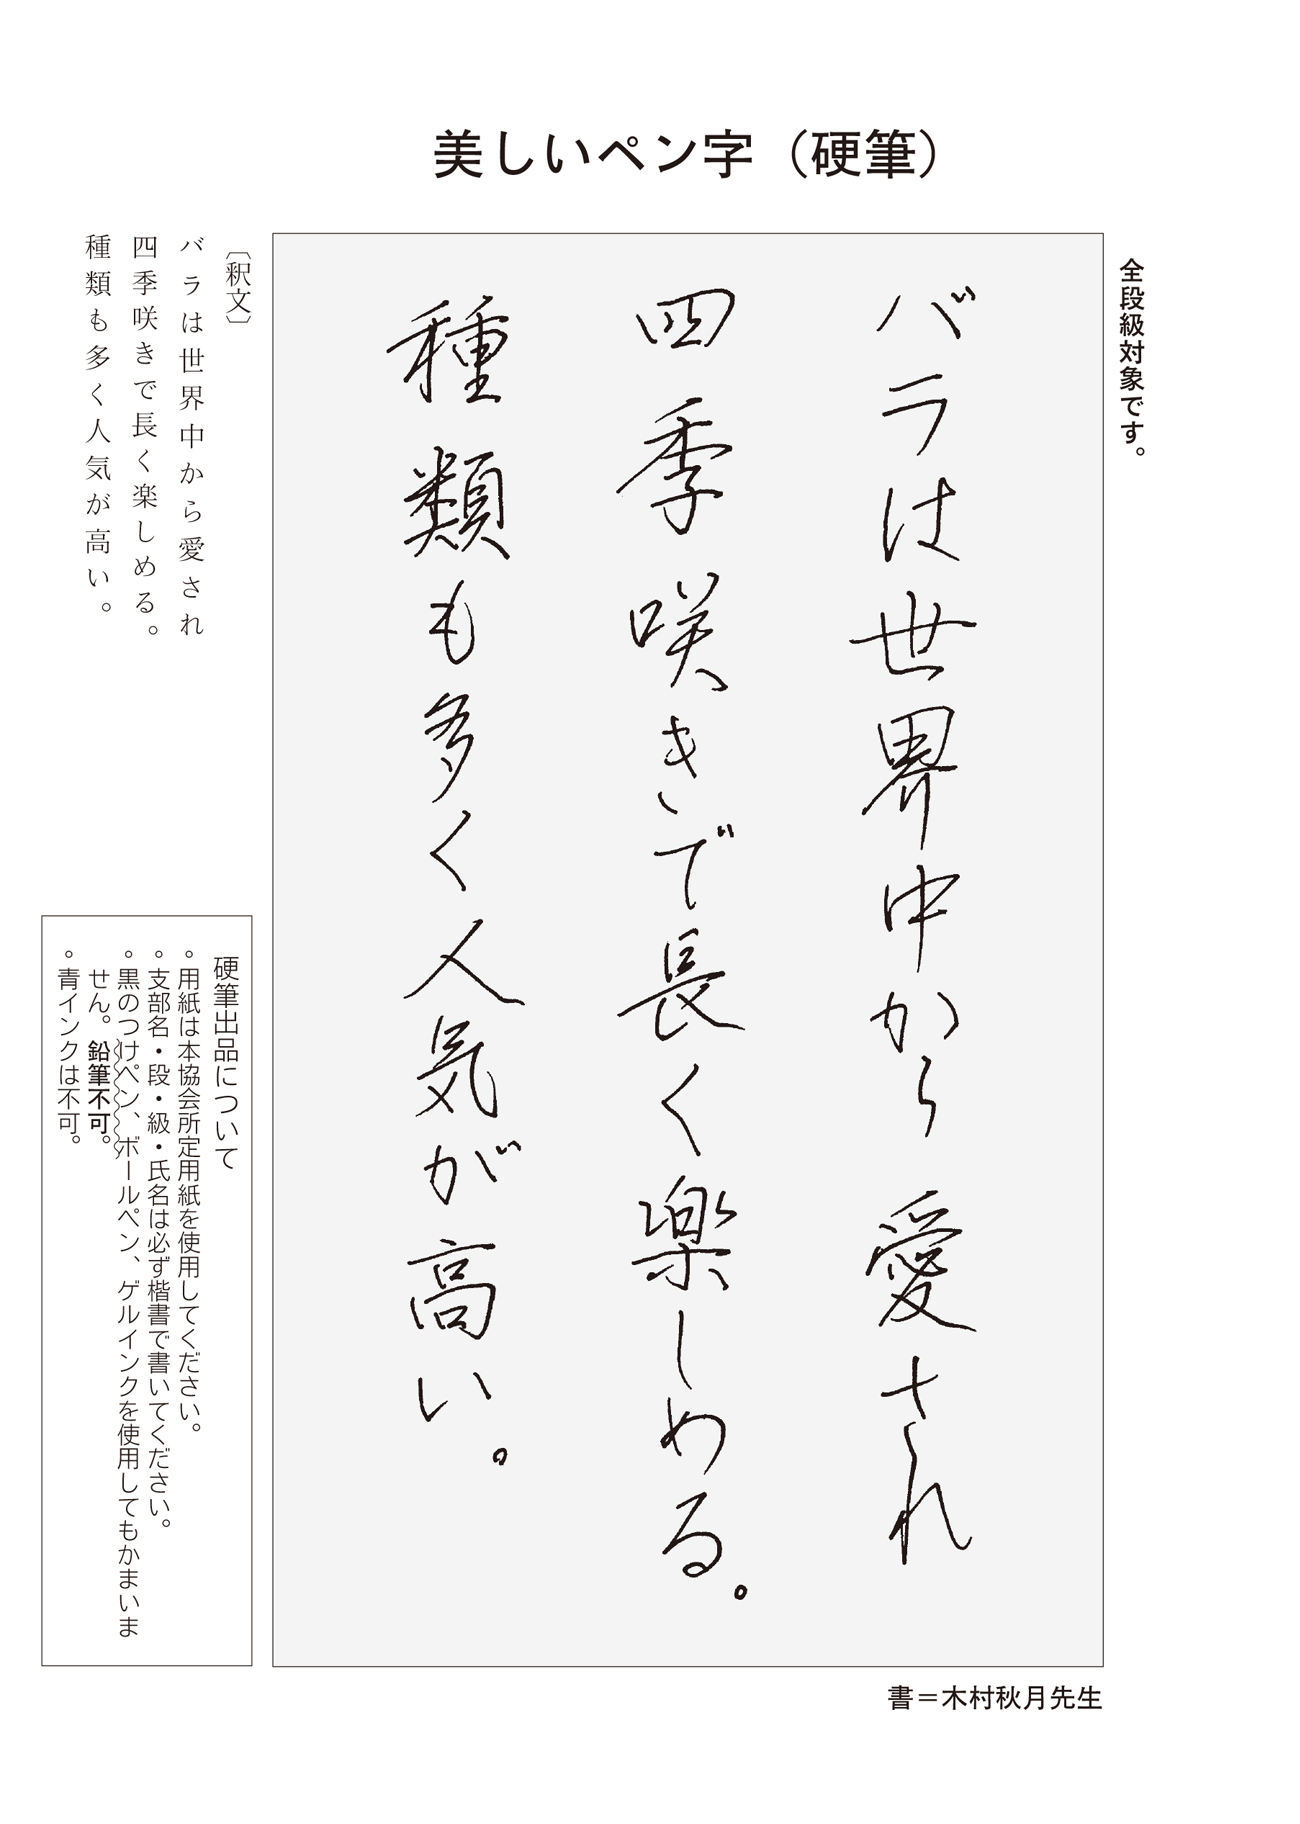 美しいペン字（硬筆）
全段級対象です。
バラは世界中から愛され
四季咲きで長く楽しめる。
種類も多く人気が高い。
書＝木村秋月先生
〔釈文〕
バラは世界中から愛され
四季咲きで長く楽しめる。
種類も多く人気が高い。
硬筆出品について
◦用紙は本協会所定用紙を使用してください。
◦支部名・段・級・氏名は必ず楷書で書いてください。
◦黒のつけペン、ボールペン、ゲルインクを使用してもかまいま
せん。鉛筆不可。
◦青インクは不可。